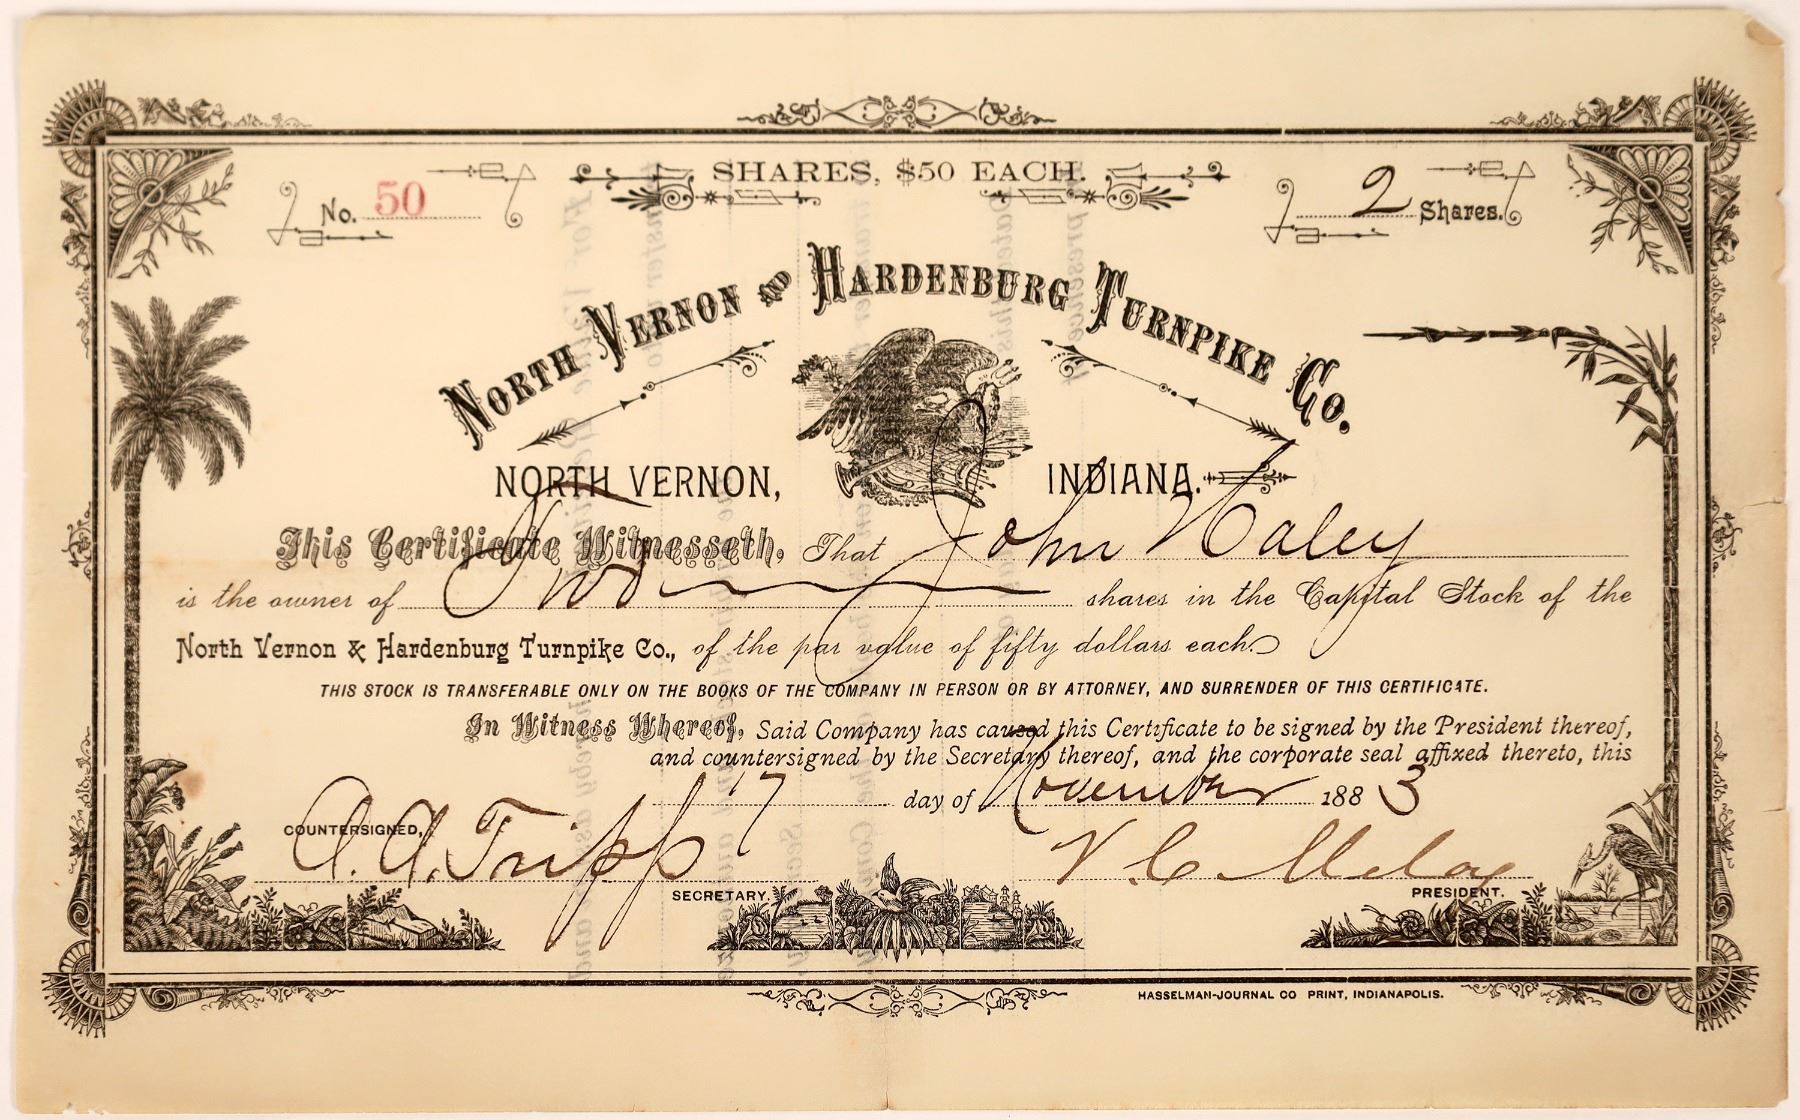 SHARES, $50 EACH.
No. 50
2 Shares.
NORTH VERNON AND HARDENBURG TURNPIKE CO.
NORTH VERNON, INDIANA.
This Certificate Witnesseth, That John Haley
is the owner of Two shares in the Capital Stock of the
North Vernon & Hardenburg Turnpike Co., of the par value of fifty dollars each.
THIS STOCK IS TRANSFERABLE ONLY ON THE BOOKS OF THE COMPANY IN PERSON OR BY ATTORNEY, AND SURRENDER OF THIS CERTIFICATE.
In Witness Whereof, Said Company has caused this Certificate to be signed by the President thereof,
and countersigned by the Secretary thereof, and the corporate seal affixed thereto, this
17 day of November 1883
COUNTERSIGNED, A. A. Tripp
V. C. Meloy
SECRETARY.
PRESIDENT.
HASSELMAN-JOURNAL CO PRINT, INDIANAPOLIS.